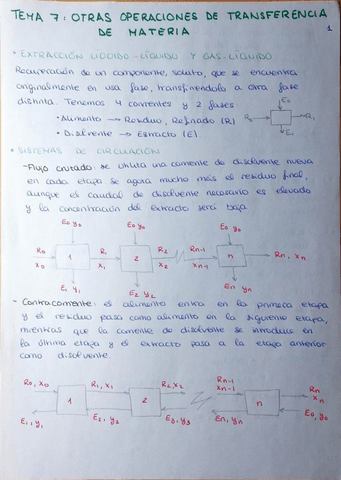 TEMA 7: OTRAS OPERACIONES DE TRANSFERENCIA
DE MATERIA
1
• EXTRACCIÓN LÍQUIDO-LÍQUIDO Y GAS-LÍQUIDO
Recuperación de un componente, soluto, que se encuentra
originalmente en una fase, transfiriéndola a otra fase
distinta. Tenemos 4 corrientes y 2 fases
• Alimento → Residuo, Refinado (R)
• Disolvente → Extracto (E).
E0
R0
R1
E1
• SISTEMAS DE CIRCULACIÓN
- Flujo cruzado: se utiliza una corriente de disolvente nueva
en cada etapa se agota mucho más el residuo final,
aunque el caudal de disolvente necesario es elevado
y la concentración del extracto será baja
E0 y0 E0 y0 E0 y0
R0 x0 1 R1 x1 2 R2 x2 Rn-1 xn-1 n Rn, xn
E1 y1 E2 y2 En yn
- Contracorriente: el alimento entra en la primera etapa
y el residuo pasa como alimento en la siguiente etapa,
mientras que la corriente de disolvente se introduce en
la última etapa y el extracto pasa a la etapa anterior
como disolvente.
R0, x0 R1, x1 R2, x2 Rn-1 xn-1 Rn xn
1 2 n
E1, y1 E2, y2 E3, y3 En, yn E0, y0